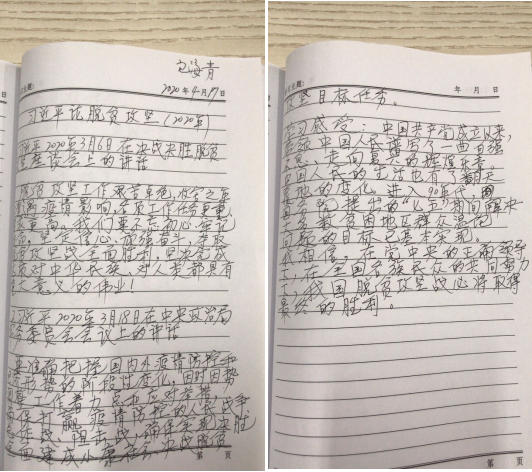 包海青
2020年4月17日
习近平论脱贫攻坚（2020年）
习近平2020年3月6日在决战决胜脱贫
攻坚座谈会上的讲话
脱贫攻坚工作艰苦卓绝，收官之年
又遭遇疫情影响，各项工作任务更重
要求更高。我们要不忘初心、牢记
使命，坚定信心、顽强奋斗，夺取
脱贫攻坚战全面胜利，坚决完成
这项对中华民族、对人类都具有
重大意义的伟业！
习近平2020年3月18日在中央政治局
常务委员会会议上的讲话
要准确把握国内外疫情防控和
经济形势的阶段性变化，因时因势
调整工作着力点和应对举措，
确保打赢疫情防控的人民战争
总体战、阻击战，确保实现决胜
全面建成小康社会、决战脱贫
第 页
年 月 日
攻坚目标任务。
学习感受：中国共产党成立以来，
中国人民谱写了一曲自强
走向复兴的辉煌乐章
国人民的生活也有了翻天
覆地的变化。进入90年代
提出的“八五”期间解决
大多数贫困地区群众温饱
问题的目标已基本实现。
我相信，在党中央的正确领导
下，在全国各族民众的共同努力
下，我国脱贫攻坚战必将取得
最终的胜利。
第 页